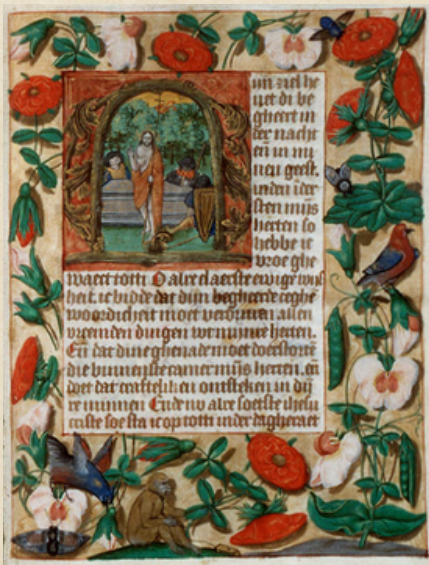 mn ziel he
uet di be
gheert in
der nacht
en in mi
nen geest.
sten mijs
herten so
hebbe ic
vroe ghe
waect totti O alre claerste ewige wijs
heit. ic bidde dat dijn begheerde
woordicheit moet verdriuen allen
vreemden dingen wt mijnre herten.
En dat dine ghenade moet
die binnenste camer mijs herten. en
doet dat crafteliken ontsteken in dij
re minnen Ende nv alre soetste ihesu
criste soe sta ic op totti inder dagheraet